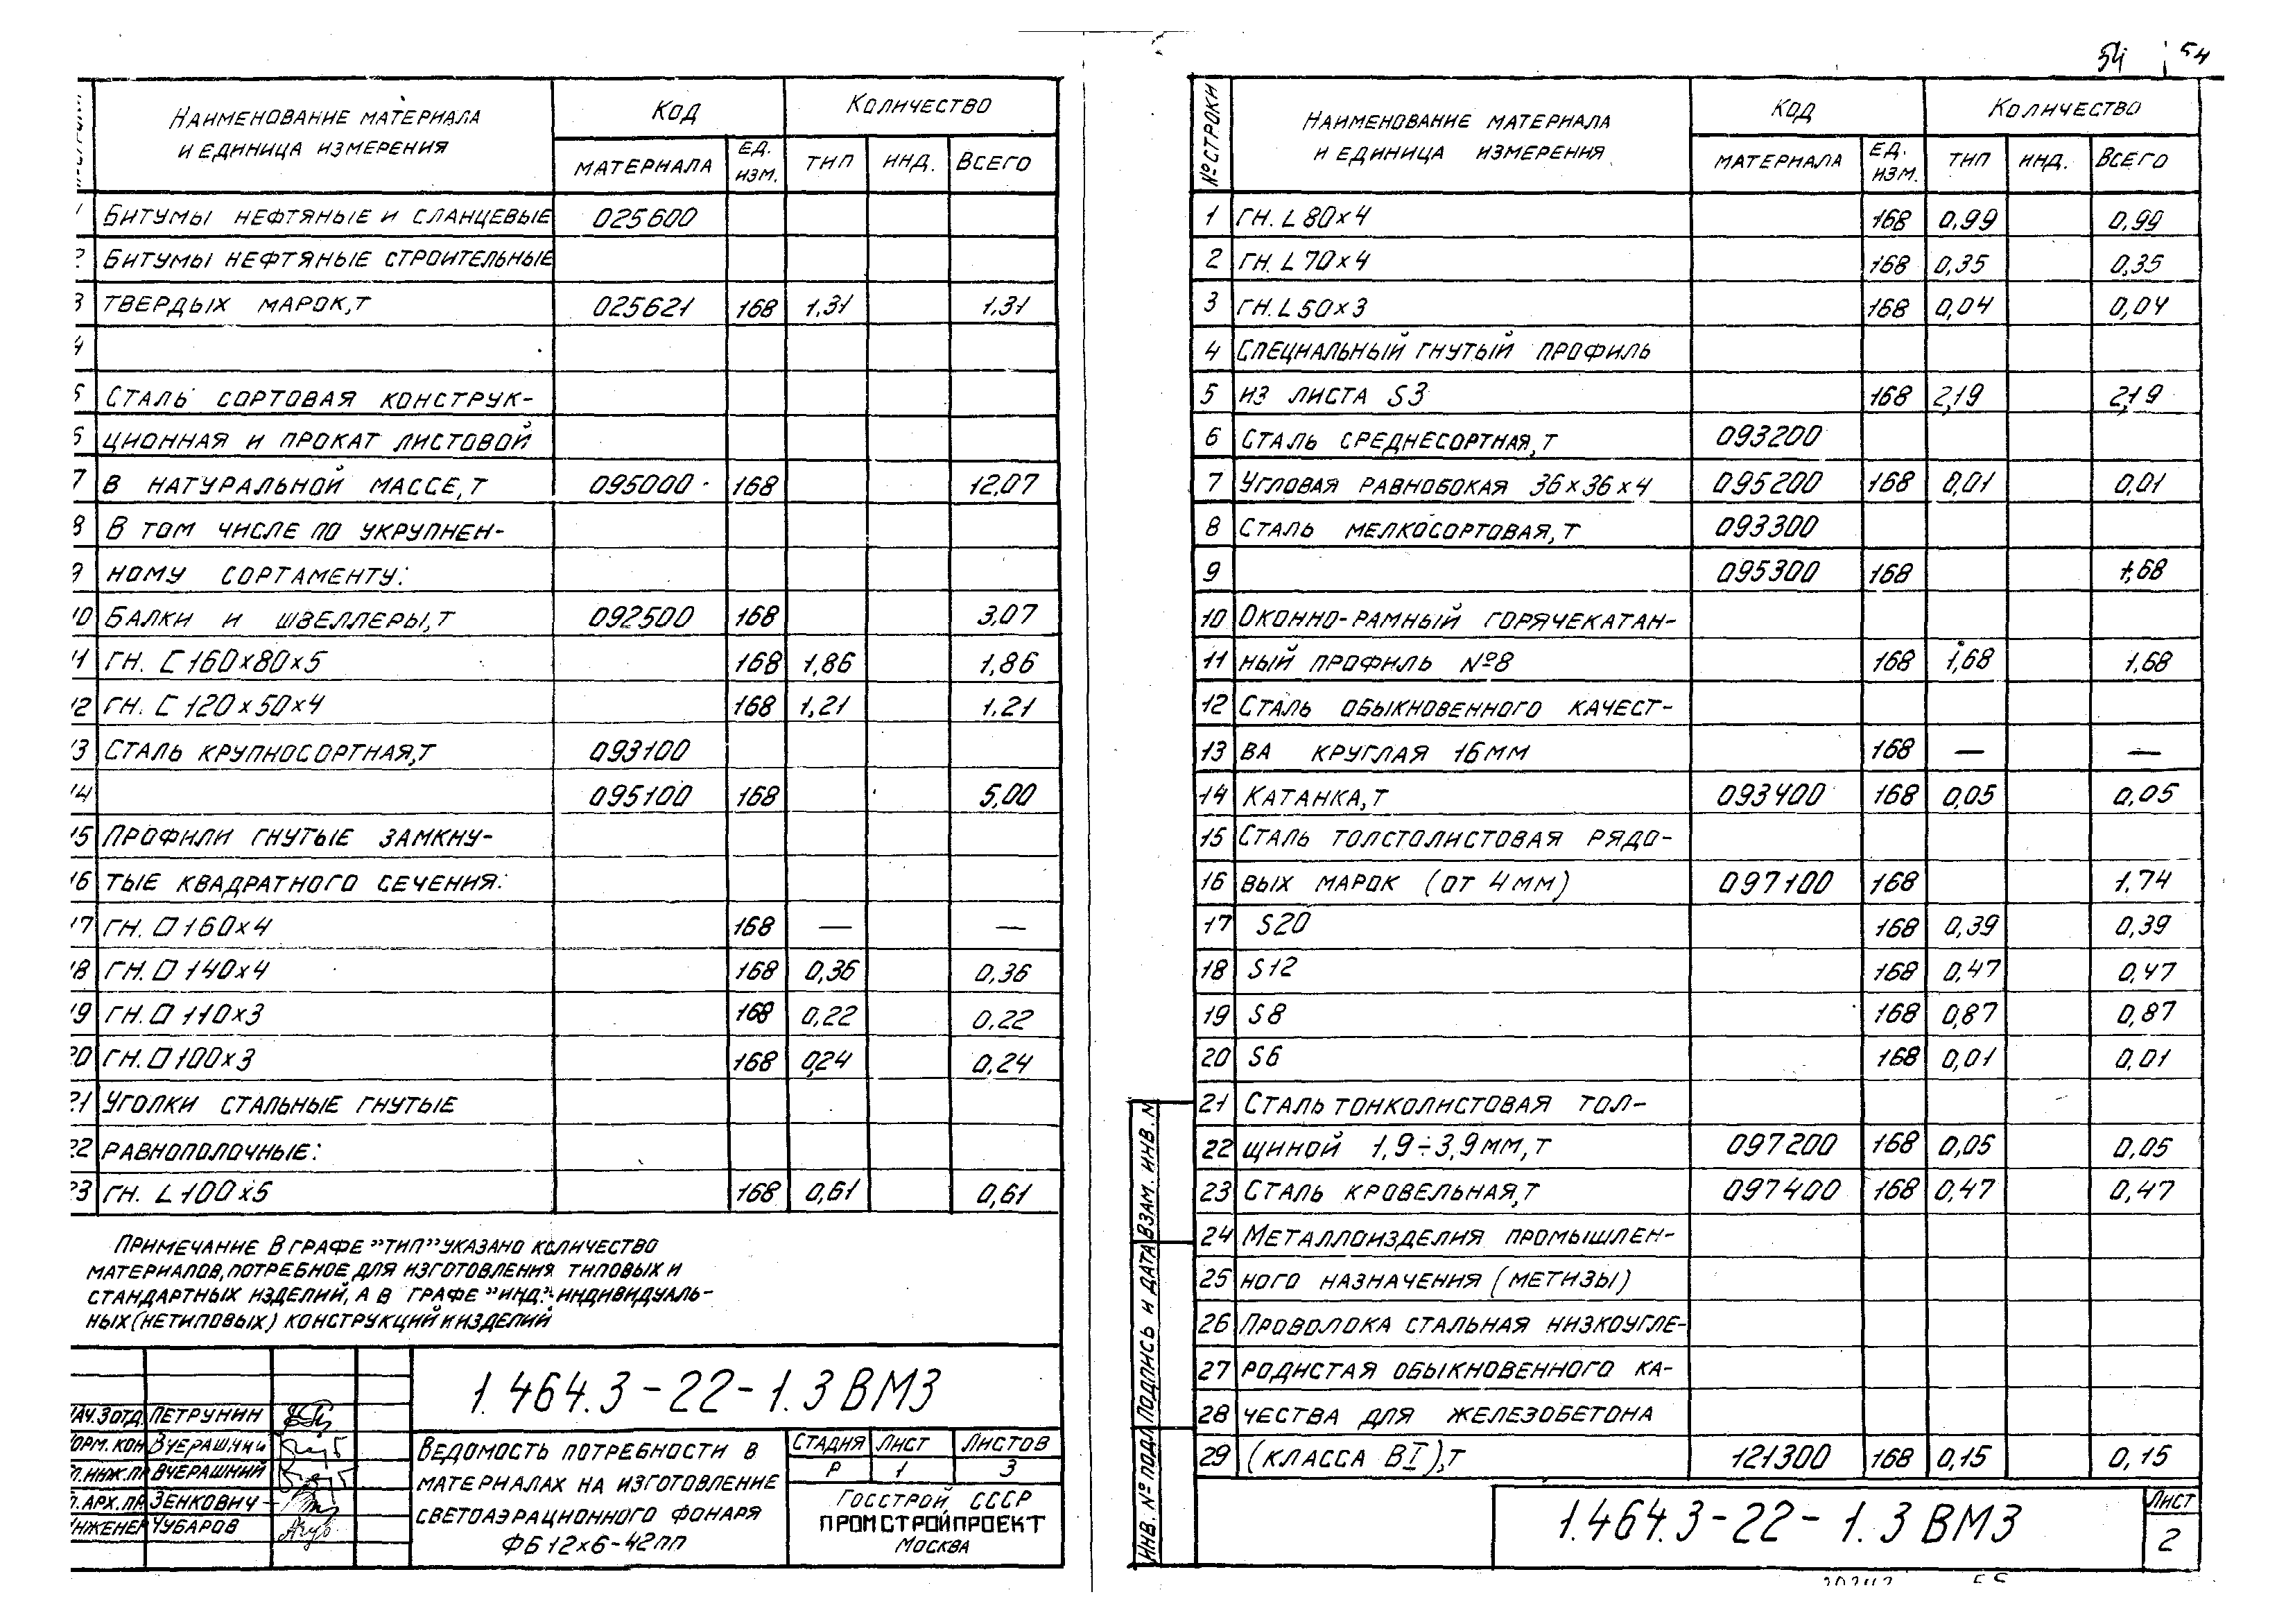 54 54
Наименование материала
и единица измерения
Код
Количество
материала
ед.
изм.
тип
инд.
Всего
1 Битумы нефтяные и сланцевые 025600
2 Битумы нефтяные строительные
3 твердых марок,т 025621 168 1,31 1,31
4
5 Сталь сортовая конструк-
6 ционная и прокат листовой
7 в натуральной массе,т 095000 168 12,07
8 В том числе по укрупнен-
9 ному сортаменту:
10 Балки и швеллеры,т 092500 168 3,07
11 гн. С 160×80×5 168 1,86 1,86
12 гн. С 120×50×4 168 1,21 1,21
13 Сталь крупносортная,т 093100
14 095100 168 5,00
15 Профили гнутые замкну-
16 тые квадратного сечения:
17 гн. □ 160×4 168 — —
18 гн. □ 140×4 168 0,36 0,36
19 гн. □ 110×3 168 0,22 0,22
20 гн. □ 100×3 168 0,24 0,24
21 Уголки стальные гнутые
22 равнополочные:
23 гн. L 100×5 168 0,61 0,61
Примечание В графе "тип" указано количество
материалов, потребное для изготовления типовых и
стандартных изделий, а в графе "инд."- индивидуаль-
ных (нетиповых) конструкций и изделий
1.464.3-22-1.3 ВМ3
нач.3отд. Петрунин
норм.кон Вчерашний
гл.инж.пр Вчерашний
гл.арх.пр. Зенкович
инженер Чубаров
Ведомость потребности в
материалах на изготовление
светоаэрационного фонаря
ФБ12×6-42пп
Стадия Лист Листов
Р 1 3
Госстрой СССР
ПРОМСТРОЙПРОЕКТ
Москва
№ строки
Наименование материала
и единица измерения
Код
Количество
материала
ед.
изм.
тип
инд.
Всего
1 гн. L 80×4 168 0,99 0,99
2 гн. L 70×4 168 0,35 0,35
3 гн. L 50×3 168 0,04 0,04
4 Специальный гнутый профиль
5 из листа S3 168 2,19 2,19
6 Сталь среднесортная,т 093200
7 Угловая равнобокая 36×36×4 095200 168 0,01 0,01
8 Сталь мелкосортовая,т 093300
9 095300 168 1,68
10 Оконно-рамный горячекатан-
11 ный профиль №8 168 1,68 1,68
12 Сталь обыкновенного качест-
13 ва круглая 16мм 168 — —
14 Катанка,т 093400 168 0,05 0,05
15 Сталь толстолистовая рядо-
16 вых марок (от 4мм) 097100 168 1,74
17 S20 168 0,39 0,39
18 S12 168 0,47 0,47
19 S8 168 0,87 0,87
20 S6 168 0,01 0,01
21 Сталь тонколистовая тол-
22 щиной 1,9÷3,9мм,т 097200 168 0,05 0,05
23 Сталь кровельная,т 097400 168 0,47 0,47
24 Металлоизделия промышлен-
25 ного назначения (метизы)
26 Проволока стальная низкоугле-
27 родистая обыкновенного ка-
28 чества для железобетона
29 (класса ВI),т 121300 168 0,15 0,15
Инв. № подл Подпись и дата Взам. инв. №
1.464.3-22-1.3 ВМ3
Лист
2